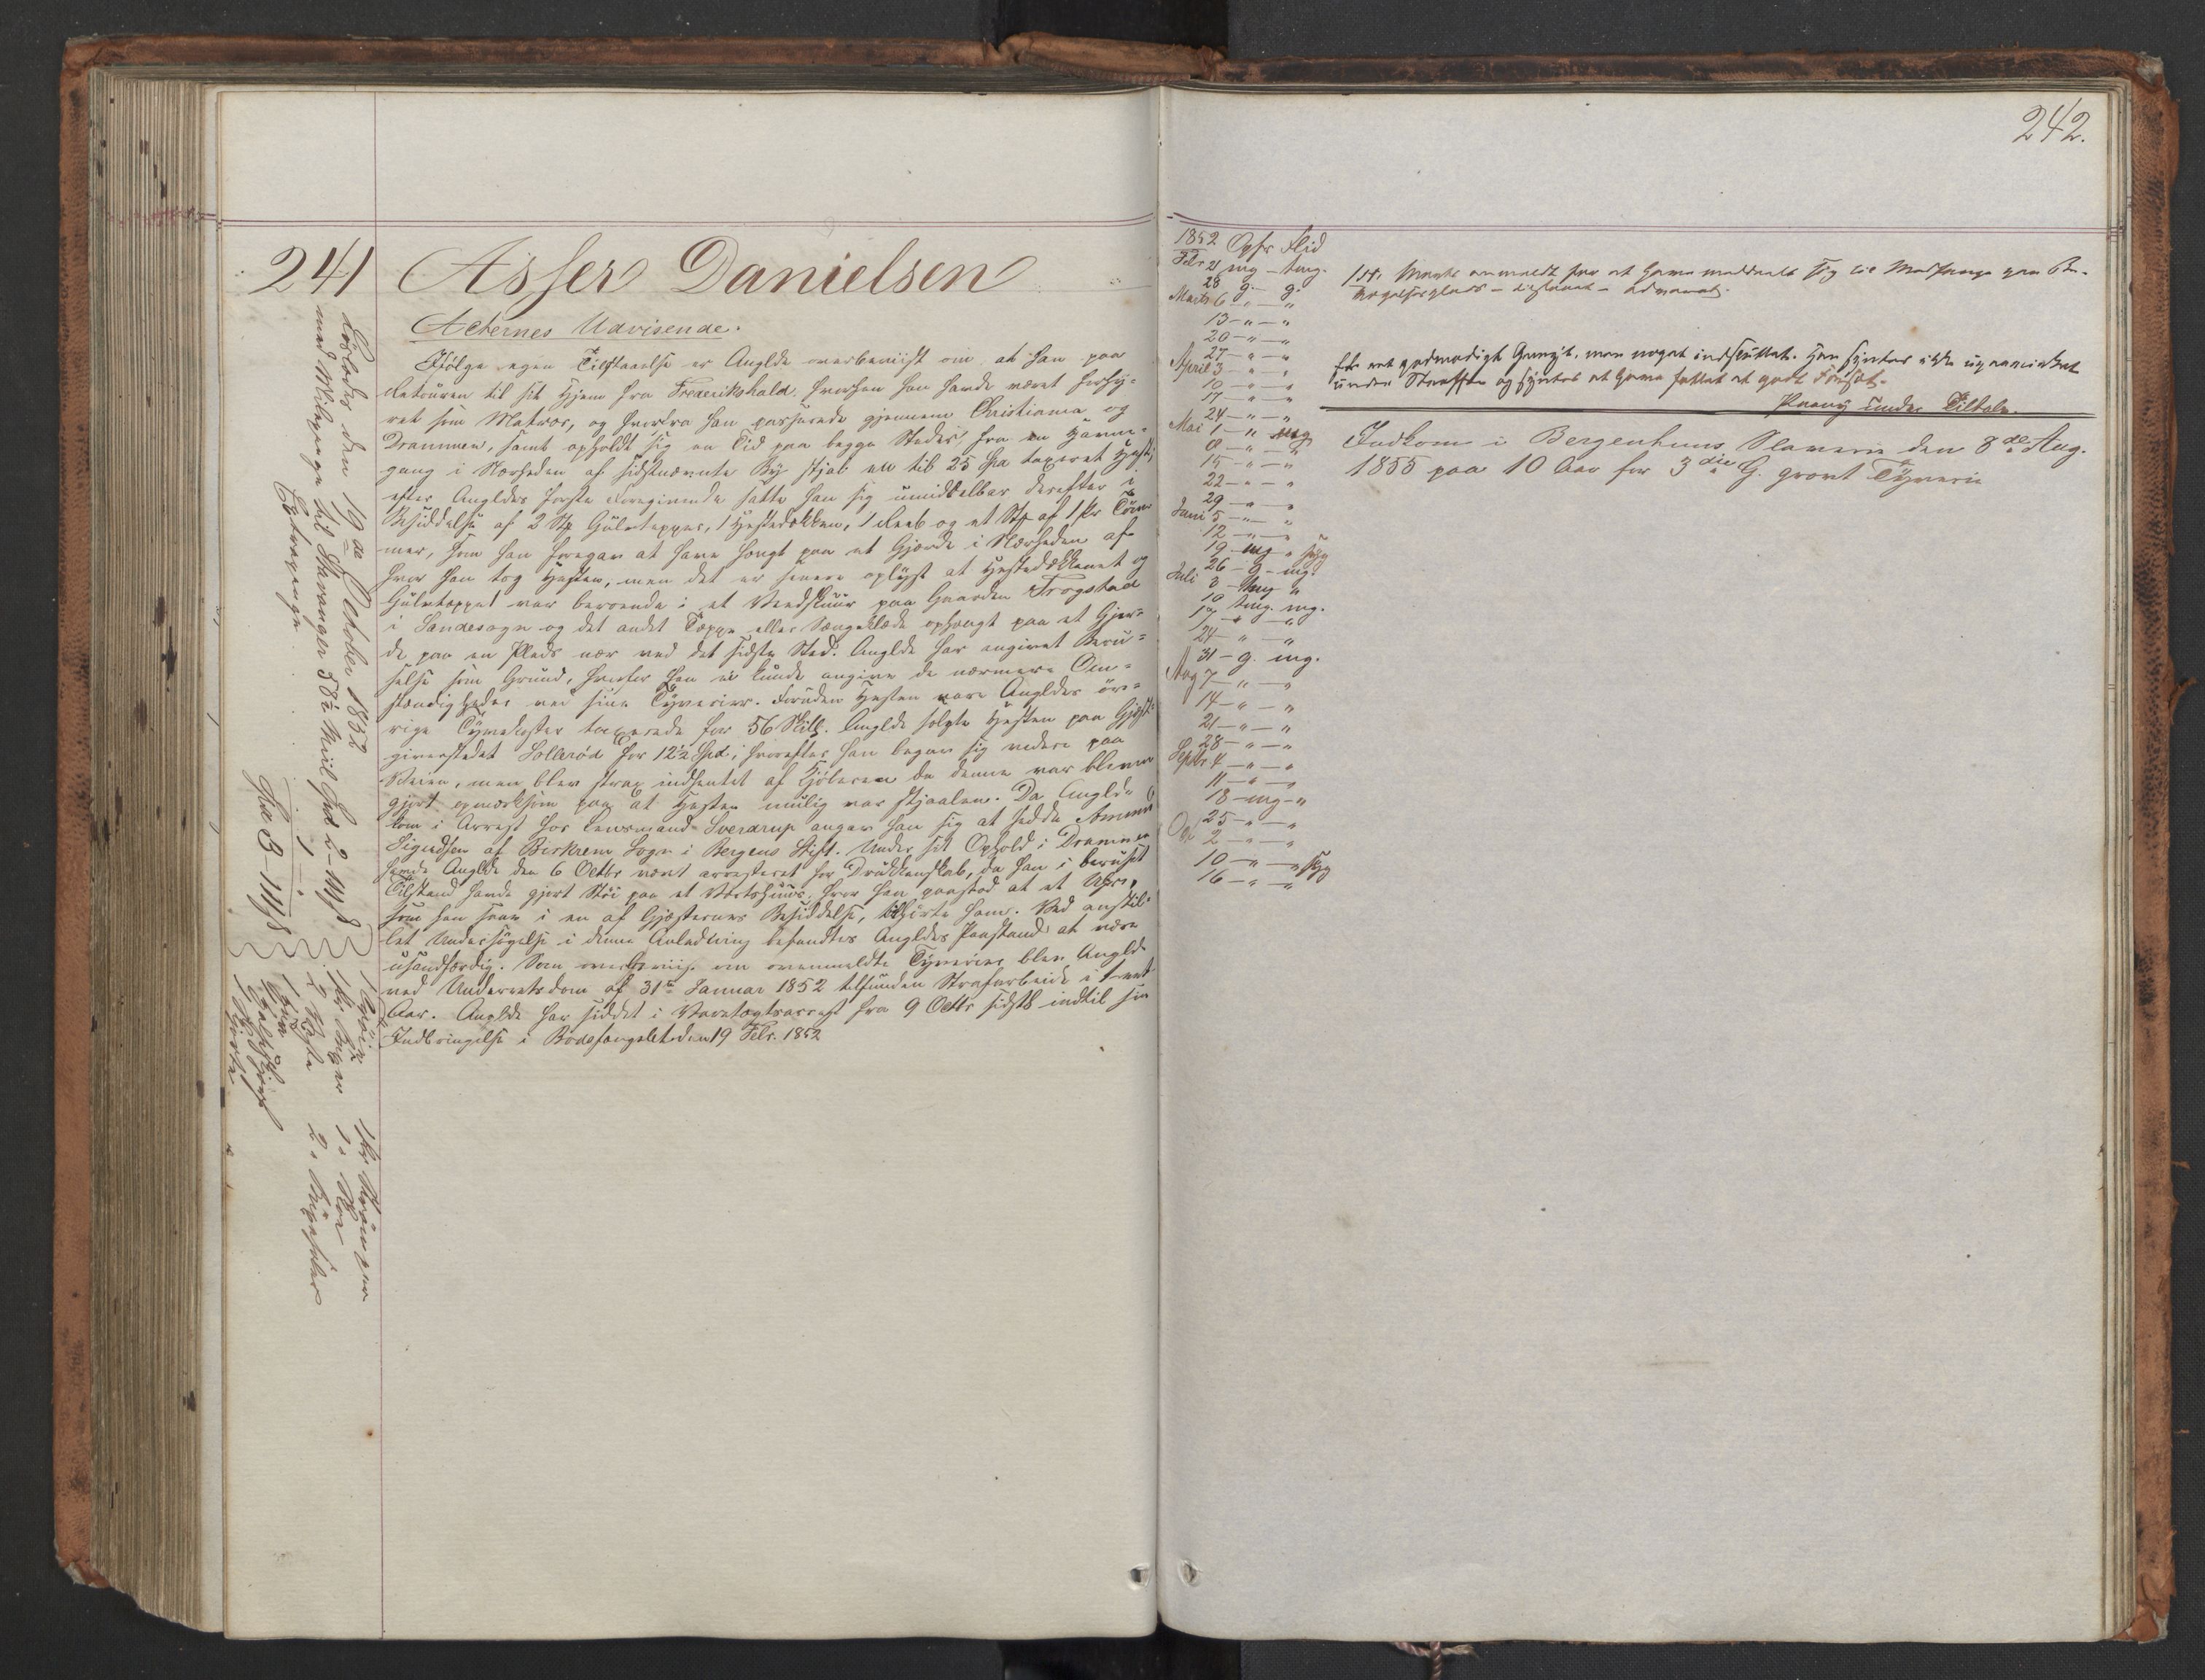 242.
241
Asser Danielsen
Acternes Udvisende.
Ifølge egen Tilstaaelse er Anglde overbeviist om at han paa
Retouren til sit Hjem fra Frederikshald, hvorhen han havde været forhy-
ret som Matros, og hvorfra han passerede gjennem Christiania og
Drammen, samt opholdt sig en Tid paa begge Steder, fra en Havne-
gang i Nærheden af sidstnævnte By stjal en til 25 Spd taxeret Hest;
efter Angldes første Foregivende satte han sig umiddelbar derefter i
Besiddelse af 2 Stk Gulvtepper, 1 Hestedækken, 1 Reeb og et Stk af 1 Pr Tøm-
mer, som han foregav at have hængt paa et Gjerde i Nærheden af
hvor han tog Hesten, men det er senere oplyst at Hestedækkenet og
Gulvteppet var beroende i et Vedskuur paa Gaarden Frogstad
i Sandesogn og det andet Teppe eller Sengeklæde ophængt paa et Gjer-
de paa en Plads nær ved det sidste Sted. Anglde har angivet Beru-
selse som Grund, hvorfor han ei kunde angive de nærmere Om-
stændigheder ved sine Tyverier. Foruden Hesten vare Angldes øv-
rige Tyvekoster taxerede for 56 Skill. Anglde solgte Hesten paa Gjest-
giverstedet Sollerød for 12½ Spd, hvorefter han begav sig videre paa
Veien, men blev strax indhentet af Kjøberen da denne var bleven
gjort opmærksom paa at Hesten mulig var stjaalen. Da Anglde
kom i Arrest hos Lensmand Sverdrup angav han sig at hedde Amund
Sigudsen af Birkrem Sogn i Bergens Stift. Under sit Ophold i Drammen
havde Anglde den 6 Octbr været arresteret for Drukkenskab, da han i beruset
Tilstand havde gjort Støi paa et Vertshuus, hvor han paastod at et Uhr,
som han saae i en af Gjæsternes Besiddelse, tilhørte ham. Ved anstil-
let Undersøgelse i denne Anledning befandtes Angldes Paastand at være
usandfærdig. Som overbeviist om ovenmeldte Tyverier blev Anglde
ved Underretsdom af 31te Januar 1852 tilfunden Strafarbeide i et
Aar. Anglde har siddet i Varetægtsarrest fra 9 Octbr sidstl indtil sin
Indbringelse i Bodsfængslet den 19 Febr. 1852
Løslades den 19de October 1852
med Milepenge til Stavanger 58½ Miil
Extrapenge
1 Trøie
1 Pr Buxer
2 Veste
1 Hue
1 Skjorte
1 Pr Strømper
1 " Skoe
2 " Buxeseler
1852 Opfr Flid
Febr 21 mg – tmg.
28 g. – g.
Marts 6 – " – "
13 – " – "
20 – " – "
27 – " – "
April 3 – " – "
10 – " – "
17 – " – "
24 – " – "
Mai 1 – " mg
8 – " – "
15 – " – "
22 – " – "
29 – " – "
Juni 5 – " – "
12 – " – "
19 – mg – "
26 – g – mg.
Juli 3 – tmg "
10 tmg. mg.
17 – " – "
24 – " – "
31 – g. mg.
Aug 7 – " – "
14 – " – "
21 – " – "
28 – " – "
Septbr 4 – " – "
11 – " – "
18 – mg – "
25 – " – "
Oct 2 – " – "
10 – " – "
16 – " – "
1st. Marts anmeldt for at have meddeelt sig til Medfange paa Be-
vægelsesplads – – advaret.
Et ret godmodigt Gemyt, men noget indsluttet. Han syntes ikke upaavirket
under Straffen og syntes at have fattet et godt Forsæt.
Paany under Tiltale.
Indkom i Bergenhuus Slaveri den 8de Aug.
1855 paa 10 Aar for 3die G. grovt Tyveri